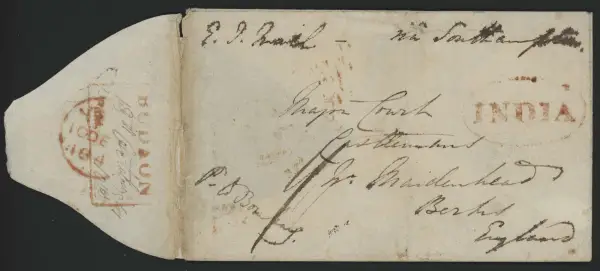 E. I. Mail – via Southampton
INDIA
Major Court
Castlemans
Nr Maidenhead
Berks
England
BUDAON